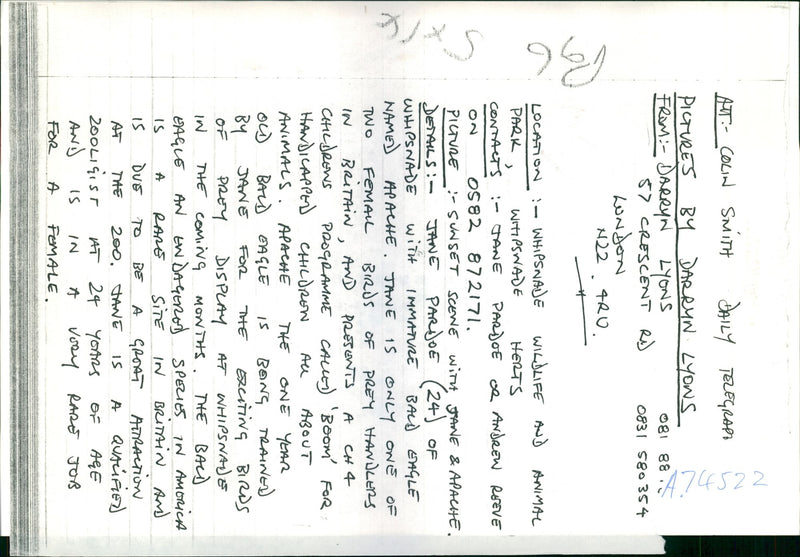 ATT:- COLIN SMITH DAILY TELEGRAPH
PICTURES BY DARRYN LYONS
FROM:- DARRYN LYONS 081 88
57 CRESCENT RD 0831 580354
LONDON
N22. 4RU.
A74522
Pg6 5x1x
LOCATION :- WHIPSNADE WILDLIFE AND ANIMAL
PARK, WHIPSNADE HERTS
CONTACTS :- JANE PARDOE OR ANDREN REEVE
ON 0582 872171.
PICTURE :- SUNSET SCENE WITH JANE & APACHE.
DETAILS:- JANE PARDOE (24) OF
WHIPSNADE WITH IMMATURE BALD EAGLE
NAMED APACHE. JANE IS ONLY ONE OF
TWO FEMAIL BIRDS OF PREY HANDLERS
IN BRITAIN, AND PRESENTS A CH4
CHILDRENS PROGRAMME CALLED 'BOOM' FOR
HANDICAPPED CHILDREN ALL ABOUT
ANIMALS. APACHE THE ONE YEAR
OLD BALD EAGLE IS BEING TRAINED
BY JANE FOR THE EXCITING BIRDS
OF PREY DISPLAY AT WHIPSNADE
IN THE COMING MONTHS. THE BALD
EAGLE AN ENDAGERED SPECIES IN AMERICA
IS A RARE SITE IN BRITAIN AND
IS DUE TO BE A GREAT ATTRACTION
AT THE ZOO. JANE IS A QUALIFIED
ZOOLIGIST AT 24 YEARS OF AGE
AND IS IN A VERY RARE JOB
FOR A FEMALE.